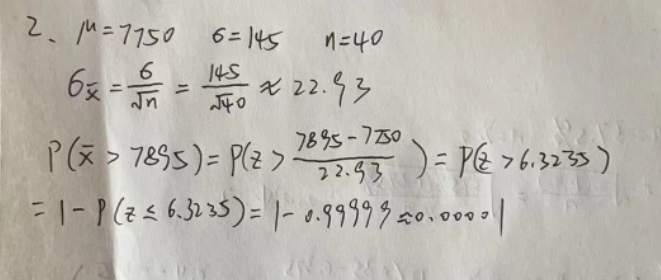 2、 μ=7750 6=145 n=40
6x̄ = 6/√n = 145/√40 ≈ 22.93
P(x̄ > 7895) = P(z > 7895-7750/22.93) = P(z > 6.3235)
= 1 - P(z ≤ 6.3235) = 1 - 0.99999 ≈ 0.00001